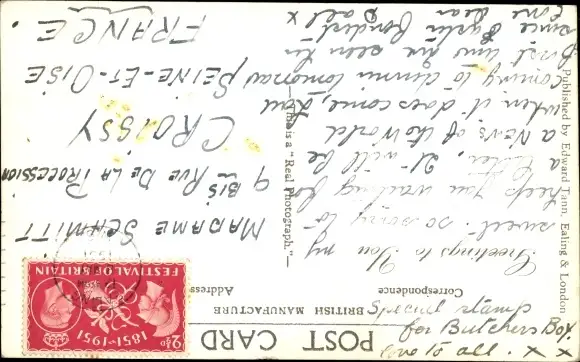 POST CARD
BRITISH MANUFACTURE
Correspondence
Address
Special stamp
for Butchers Boy.
love to all x x
Greetings to You my
sweet. so sorry to
keep you waiting for
a letter, It will be
a News of the World
when it does come, Paul
coming to dinner tomorrow
first time Ive seen him
since Paris Fondest
love dear Doll x
MADAME SCHMITT
9 BIS RUE DE LA PROCESSION
CROISSY
SEINE-ET-OISE
FRANCE.
This is a "Real Photograph."
Published by Edward Tann, Ealing & London
2½D
1851-1951
FESTIVAL OF BRITAIN